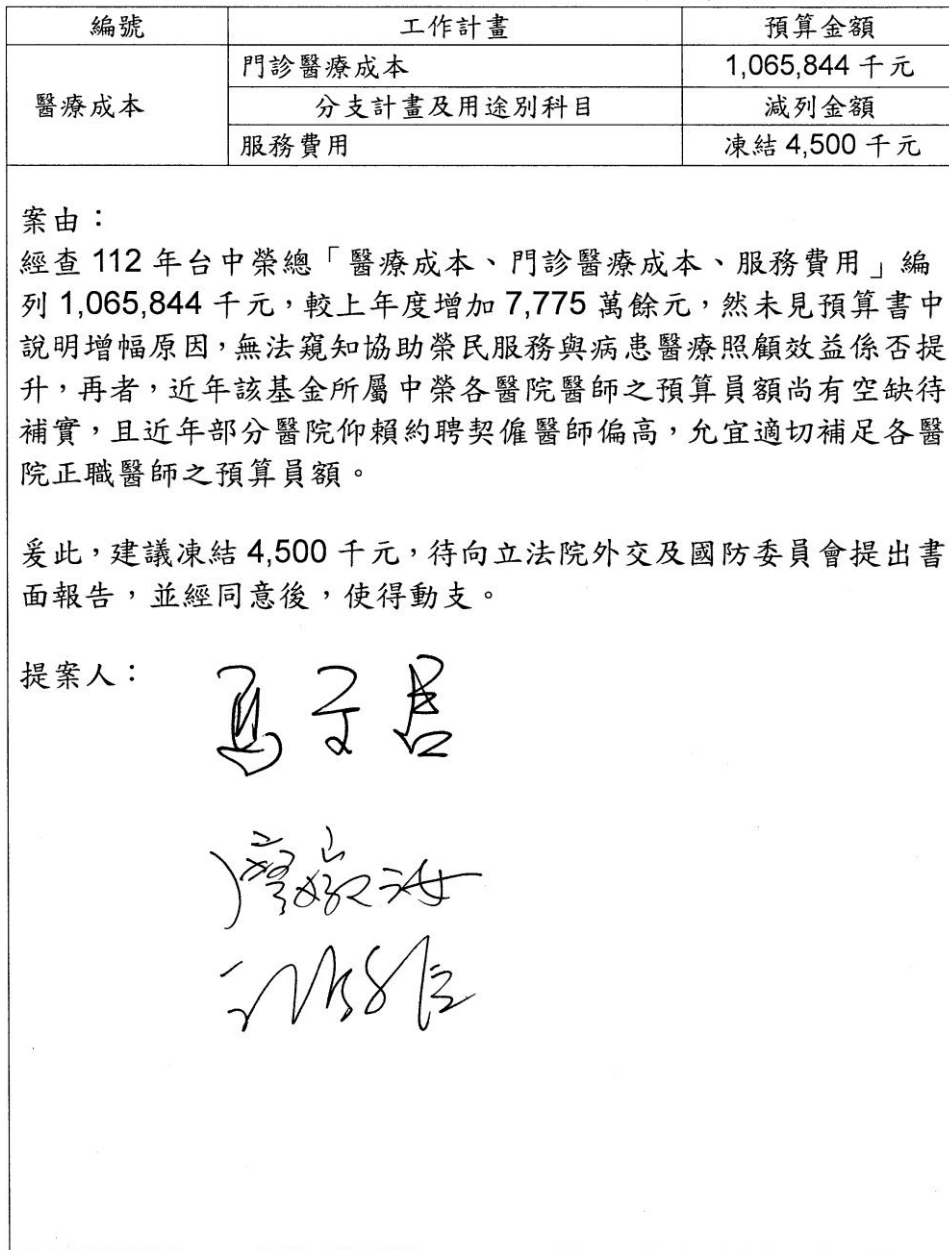 編號 工作計畫 預算金額
醫療成本 門診醫療成本 1,065,844 千元
分支計畫及用途別科目 減列金額
服務費用 凍結 4,500 千元
案由：
經查 112 年台中榮總「醫療成本、門診醫療成本、服務費用」編
列 1,065,844 千元，較上年度增加 7,775 萬餘元，然未見預算書中
說明增幅原因，無法窺知協助榮民服務與病患醫療照顧效益係否提
升，再者，近年該基金所屬中榮各醫院醫師之預算員額尚有空缺待
補實，且近年部分醫院仰賴約聘契僱醫師偏高，允宜適切補足各醫
院正職醫師之預算員額。
爰此，建議凍結 4,500 千元，待向立法院外交及國防委員會提出書
面報告，並經同意後，使得動支。
提案人：
馬文君